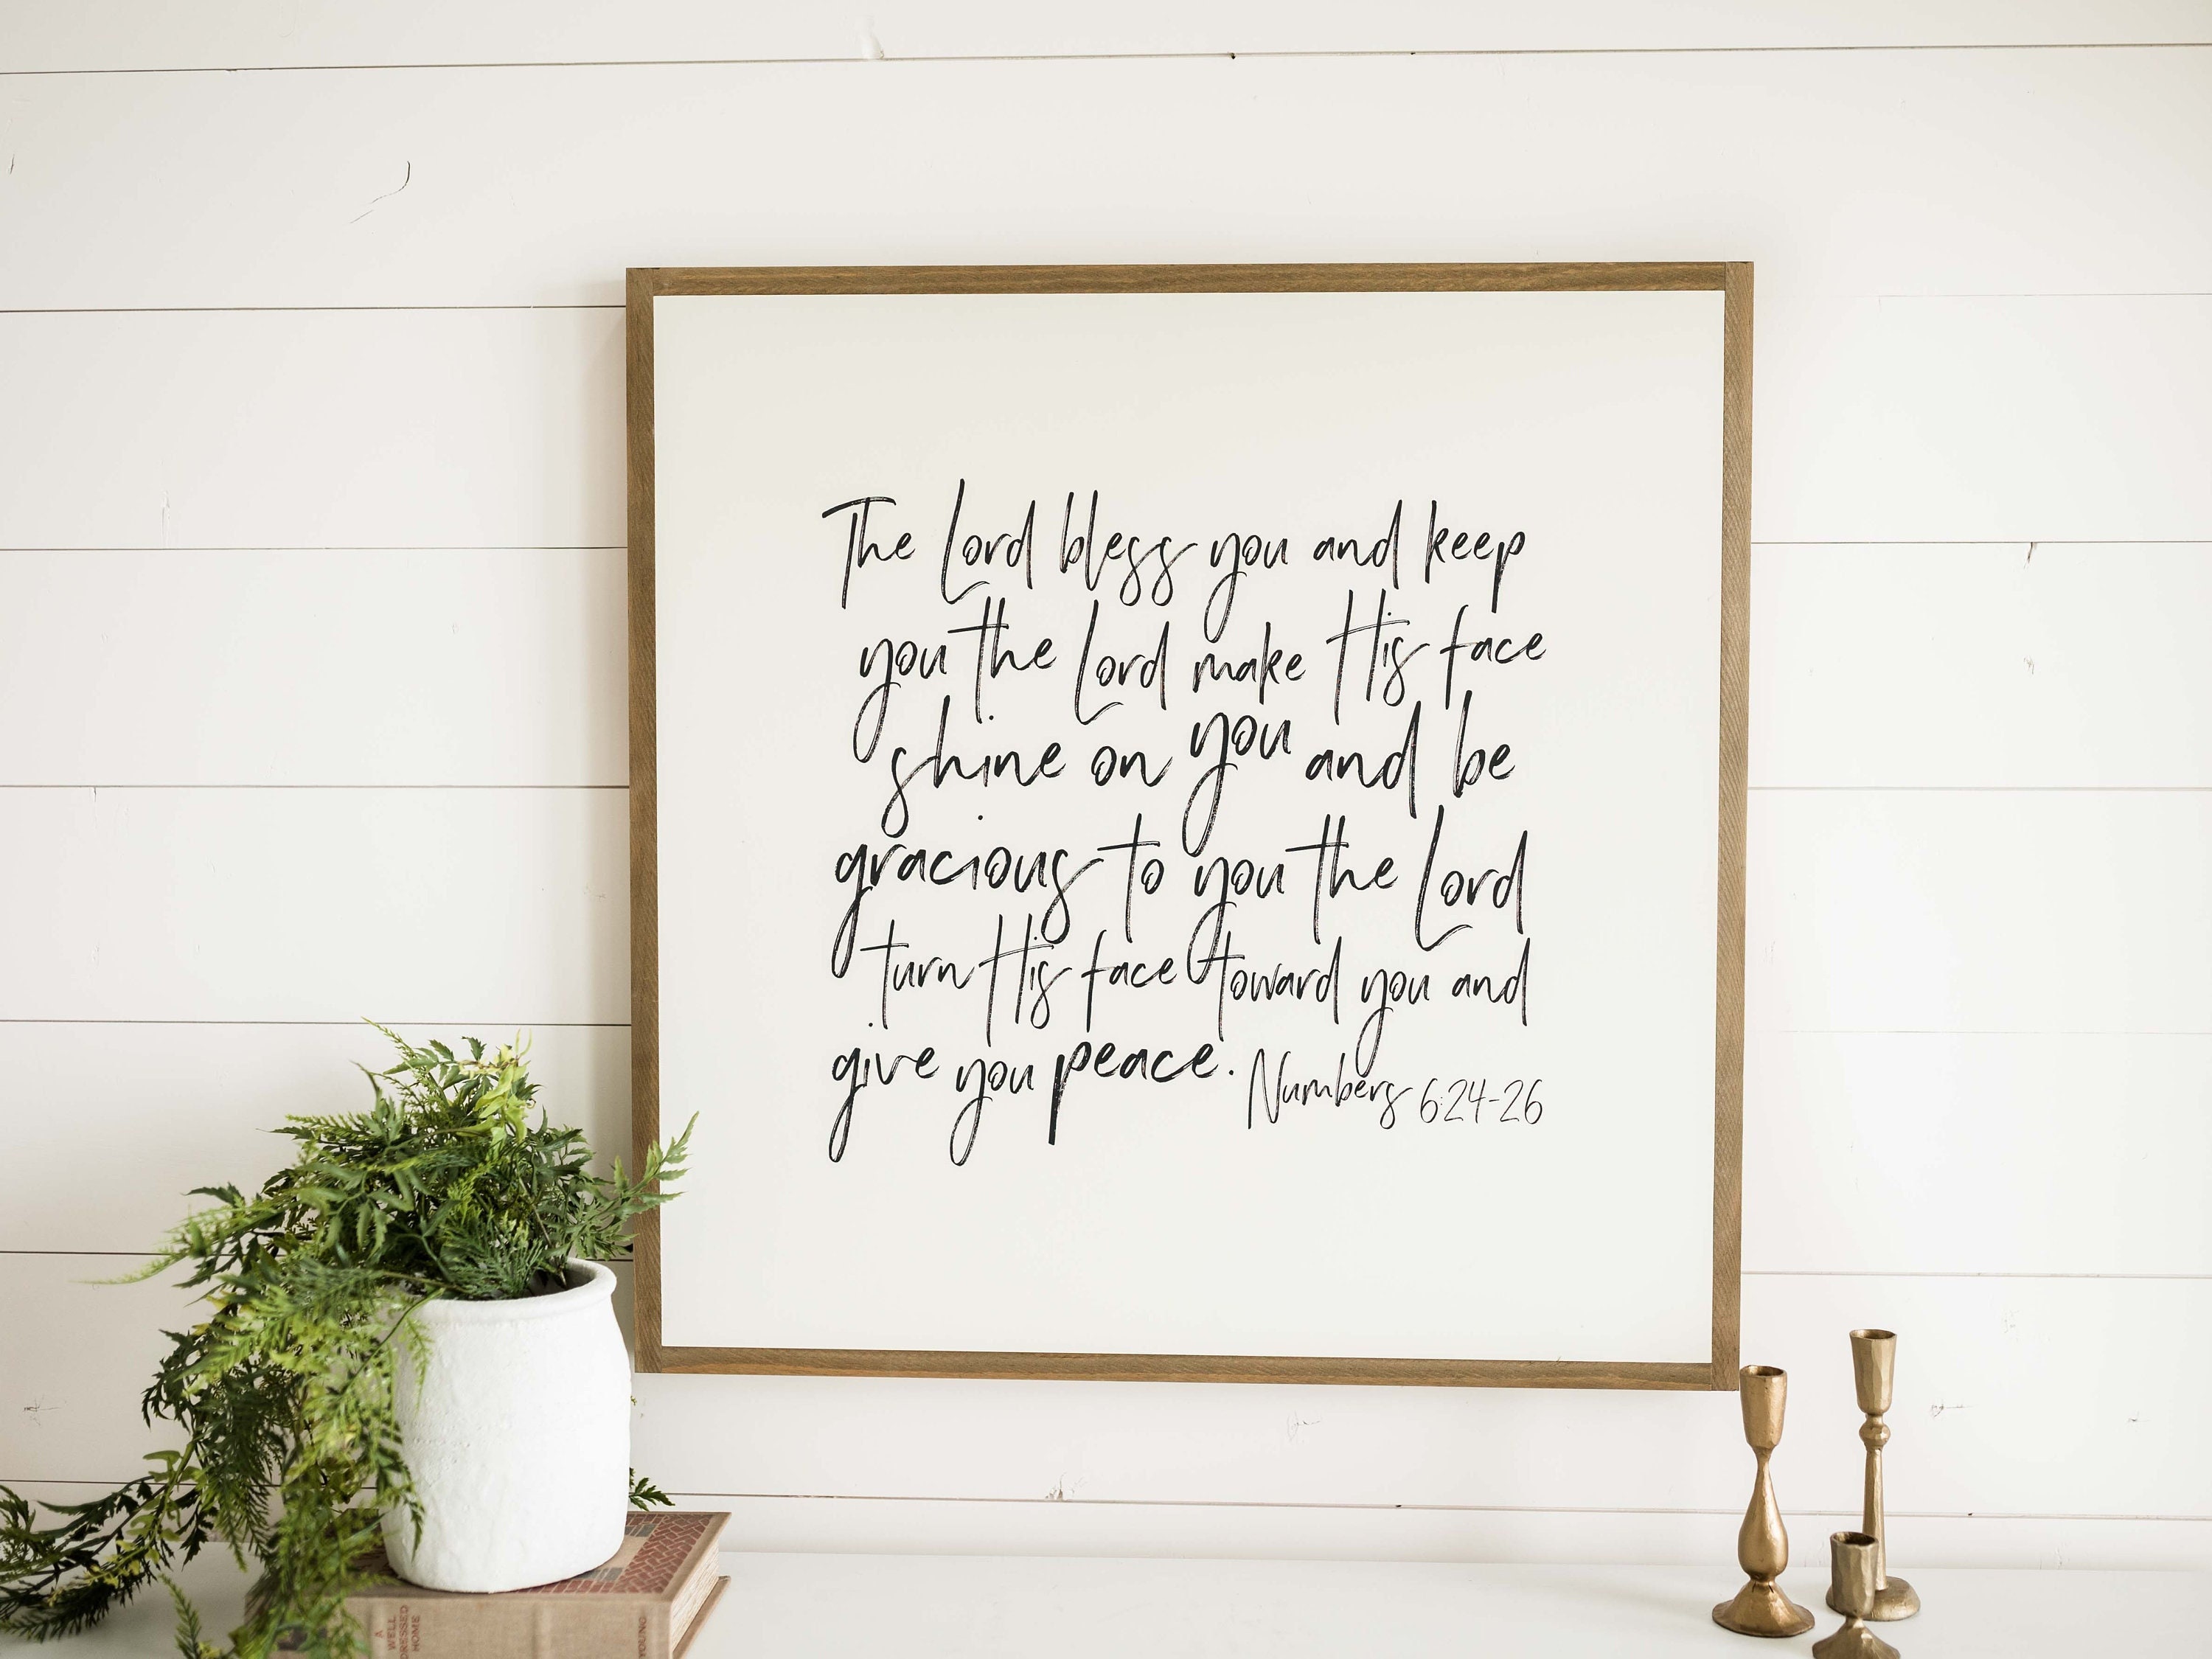 The Lord bless you and keep
you the Lord make His face
shine on you and be
gracious to you the Lord
turn His face toward you and
give you peace. Numbers 6:24-26
A
WELL
DRESSED
HOME
YOUNG